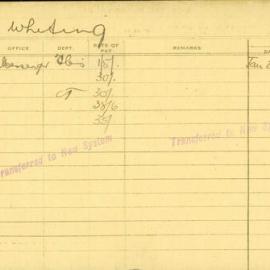 Whiting
OFFICE DEPT. RATE OF PAY REMARKS DA
Messenger 15/. Jan
30/.
T 30/.
38/6
39/
Transferred to New System Transferred to New Sys